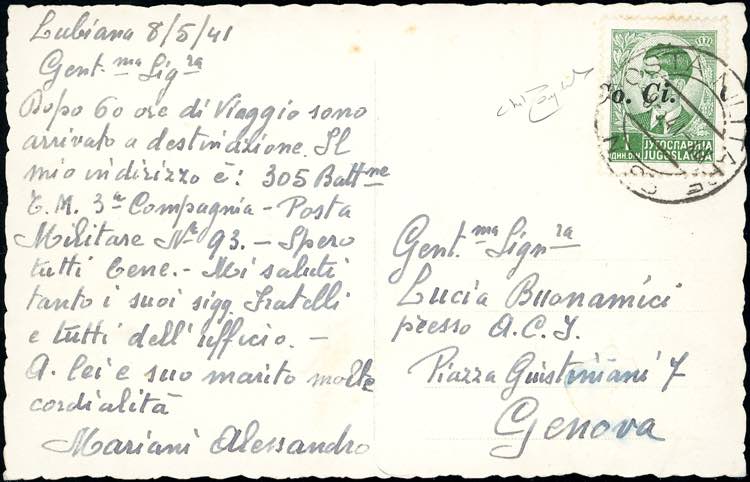 Lubiana 8/5/41
Gent.ma Sig.ra
Dopo 60 ore di viaggio sono
arrivato a destinazione. Il
mio indirizzo è: 305 Batt.ne
T.M. 3a Compagnia - Posta
Militare No 93. - Spero
tutti bene. - Mi saluti
tanto i suoi sigg. Fratelli
e tutti dell'ufficio. -
A lei e suo marito molte
cordialità
Mariani Alessandro
Co. Ci.
ЈУГОСЛАВИЈА
JUGOSLAVIJA
POSTA MILITARE
Gent.ma Sign.ra
Lucia Buonamici
presso A.C.I.
Piazza Giustiniani 7
Genova